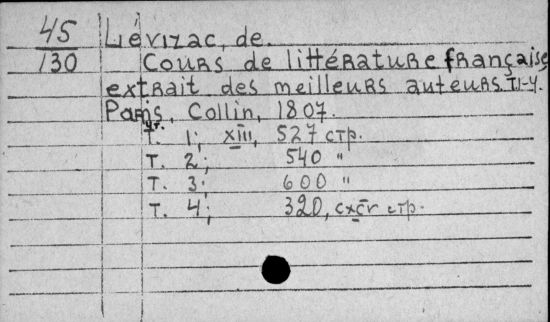 45
130
Lévizac, de.
Cours de littérature française
extrait des meilleurs auteurs. T.1-4.
Paris, Collin, 1807.
Т. 1; XIII, 527 стр.
Т. 2; 540 "
Т. 3; 600 "
Т. 4; 320, стр.